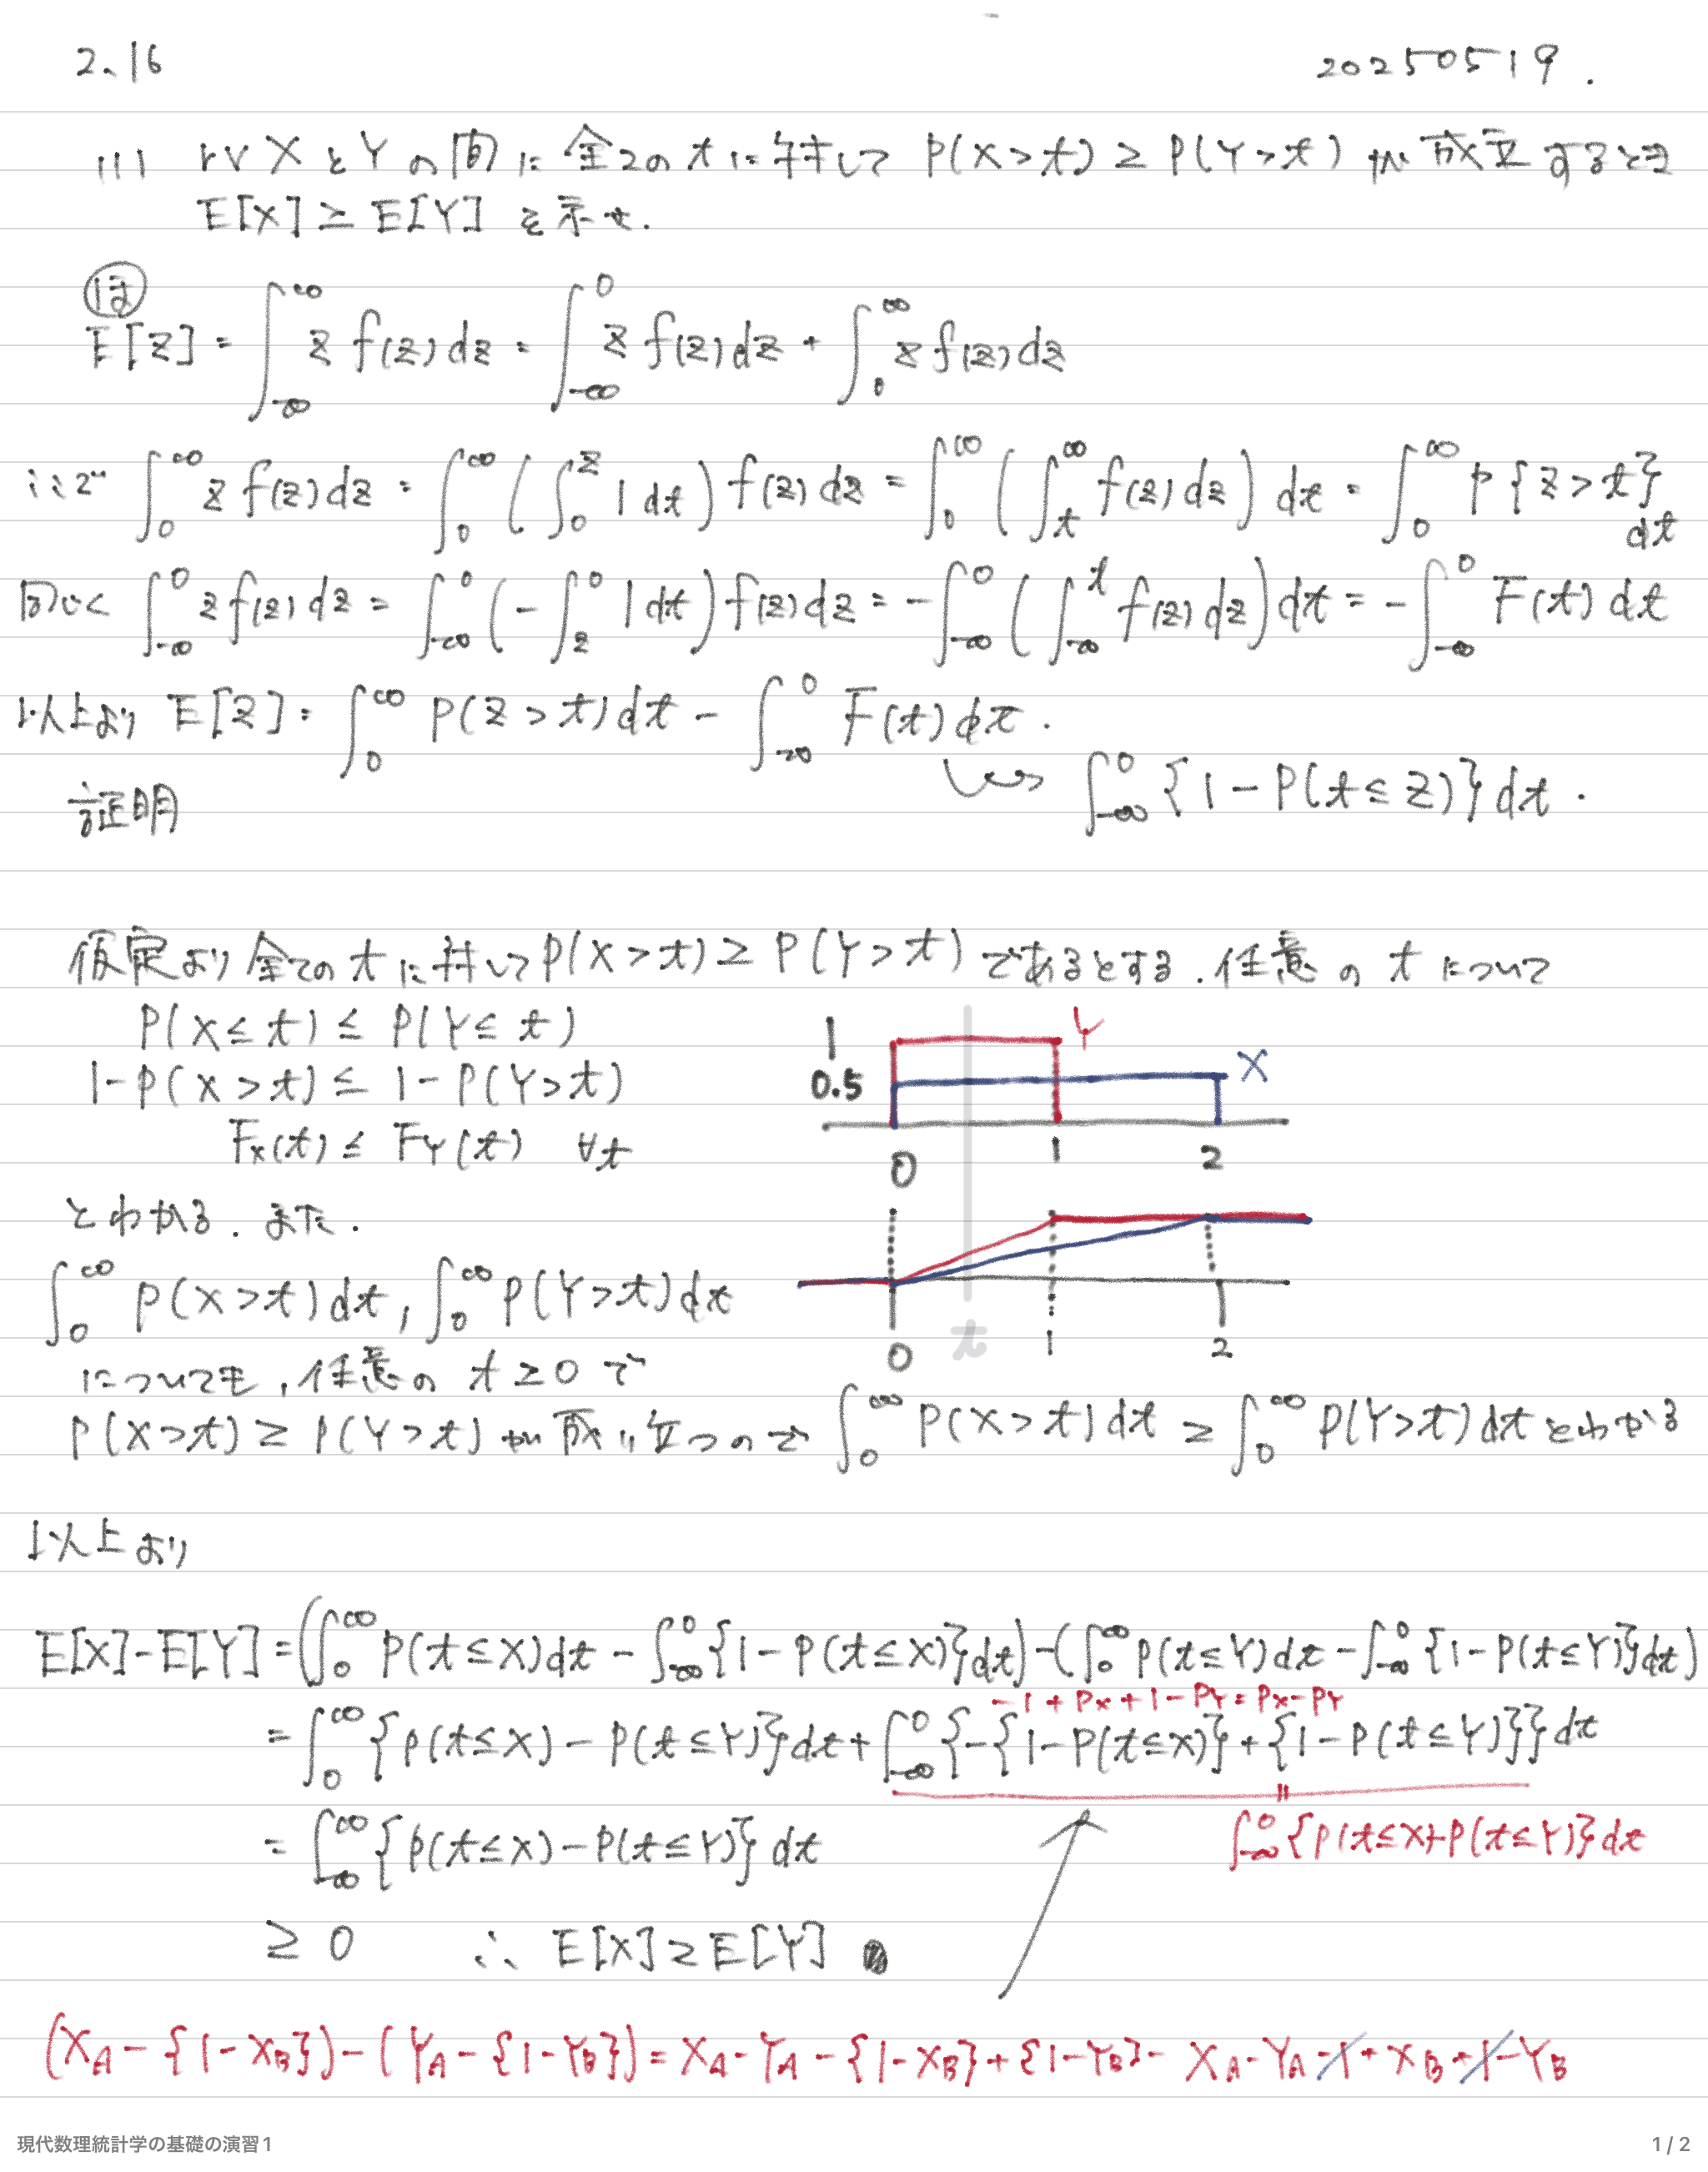 2.16 20250519.
(1) rv XとYの間に全てのtに対して P(X>t) ≥ P(Y>t) が成立するとき
E[X] ≥ E[Y] を示せ.
ほ
E[Z] = ∫_{-∞}^{∞} z f(z) dz = ∫_{-∞}^{0} z f(z) dz + ∫_{0}^{∞} z f(z) dz
ここで ∫_{0}^{∞} z f(z) dz = ∫_{0}^{∞} ( ∫_{0}^{z} 1 dt ) f(z) dz = ∫_{0}^{∞} ( ∫_{t}^{∞} f(z) dz ) dt = ∫_{0}^{∞} P{z>t} dt
同じく ∫_{-∞}^{0} z f(z) dz = ∫_{-∞}^{0} ( - ∫_{z}^{0} 1 dt ) f(z) dz = - ∫_{-∞}^{0} ( ∫_{-∞}^{t} f(z) dz ) dt = - ∫_{-∞}^{0} F(t) dt
以上より E[Z] = ∫_{0}^{∞} P(Z>t) dt - ∫_{-∞}^{0} F(t) dt.
∫_{-∞}^{0} {1 - P(t≤Z)} dt.
証明
仮定より全てのtに対して P(X>t) ≥ P(Y>t) であるとする. 任意の t について
P(X≤t) ≤ P(Y≤t)
1-P(X>t) ≤ 1-P(Y>t)
F_X(t) ≤ F_Y(t) ∀t
1 Y
0.5 X
0 1 2
とわかる. また.
∫_{0}^{∞} P(X>t) dt, ∫_{0}^{∞} P(Y>t) dt
0 t 1 2
についても, 任意の t≥0 で
P(X>t) ≥ P(Y>t) が成り立つので ∫_{0}^{∞} P(X>t) dt ≥ ∫_{0}^{∞} P(Y>t) dt とわかる
以上より
E[X]-E[Y] = (∫_{0}^{∞} P(t≤X) dt - ∫_{-∞}^{0} {1-P(t≤X)} dt) - (∫_{0}^{∞} P(t≤Y) dt - ∫_{-∞}^{0} {1-P(t≤Y)} dt)
-1+PX+1-PY=PX-PY
= ∫_{0}^{∞} {P(t≤X) - P(t≤Y)} dt + ∫_{-∞}^{0} {-{1-P(t≤X)} + {1-P(t≤Y)}} dt
= ∫_{-∞}^{∞} {P(t≤X) - P(t≤Y)} dt
∫_{-∞}^{0} {P(t≤X)-P(t≤Y)} dt
≥ 0 ∴ E[X] ≥ E[Y]
(X_A - {1-X_B}) - (Y_A - {1-Y_B}) = X_A - Y_A - {1-X_B} + {1-Y_B} = X_A - Y_A - 1 + X_B + 1 - Y_B
現代数理統計学の基礎の演習1 1 / 2